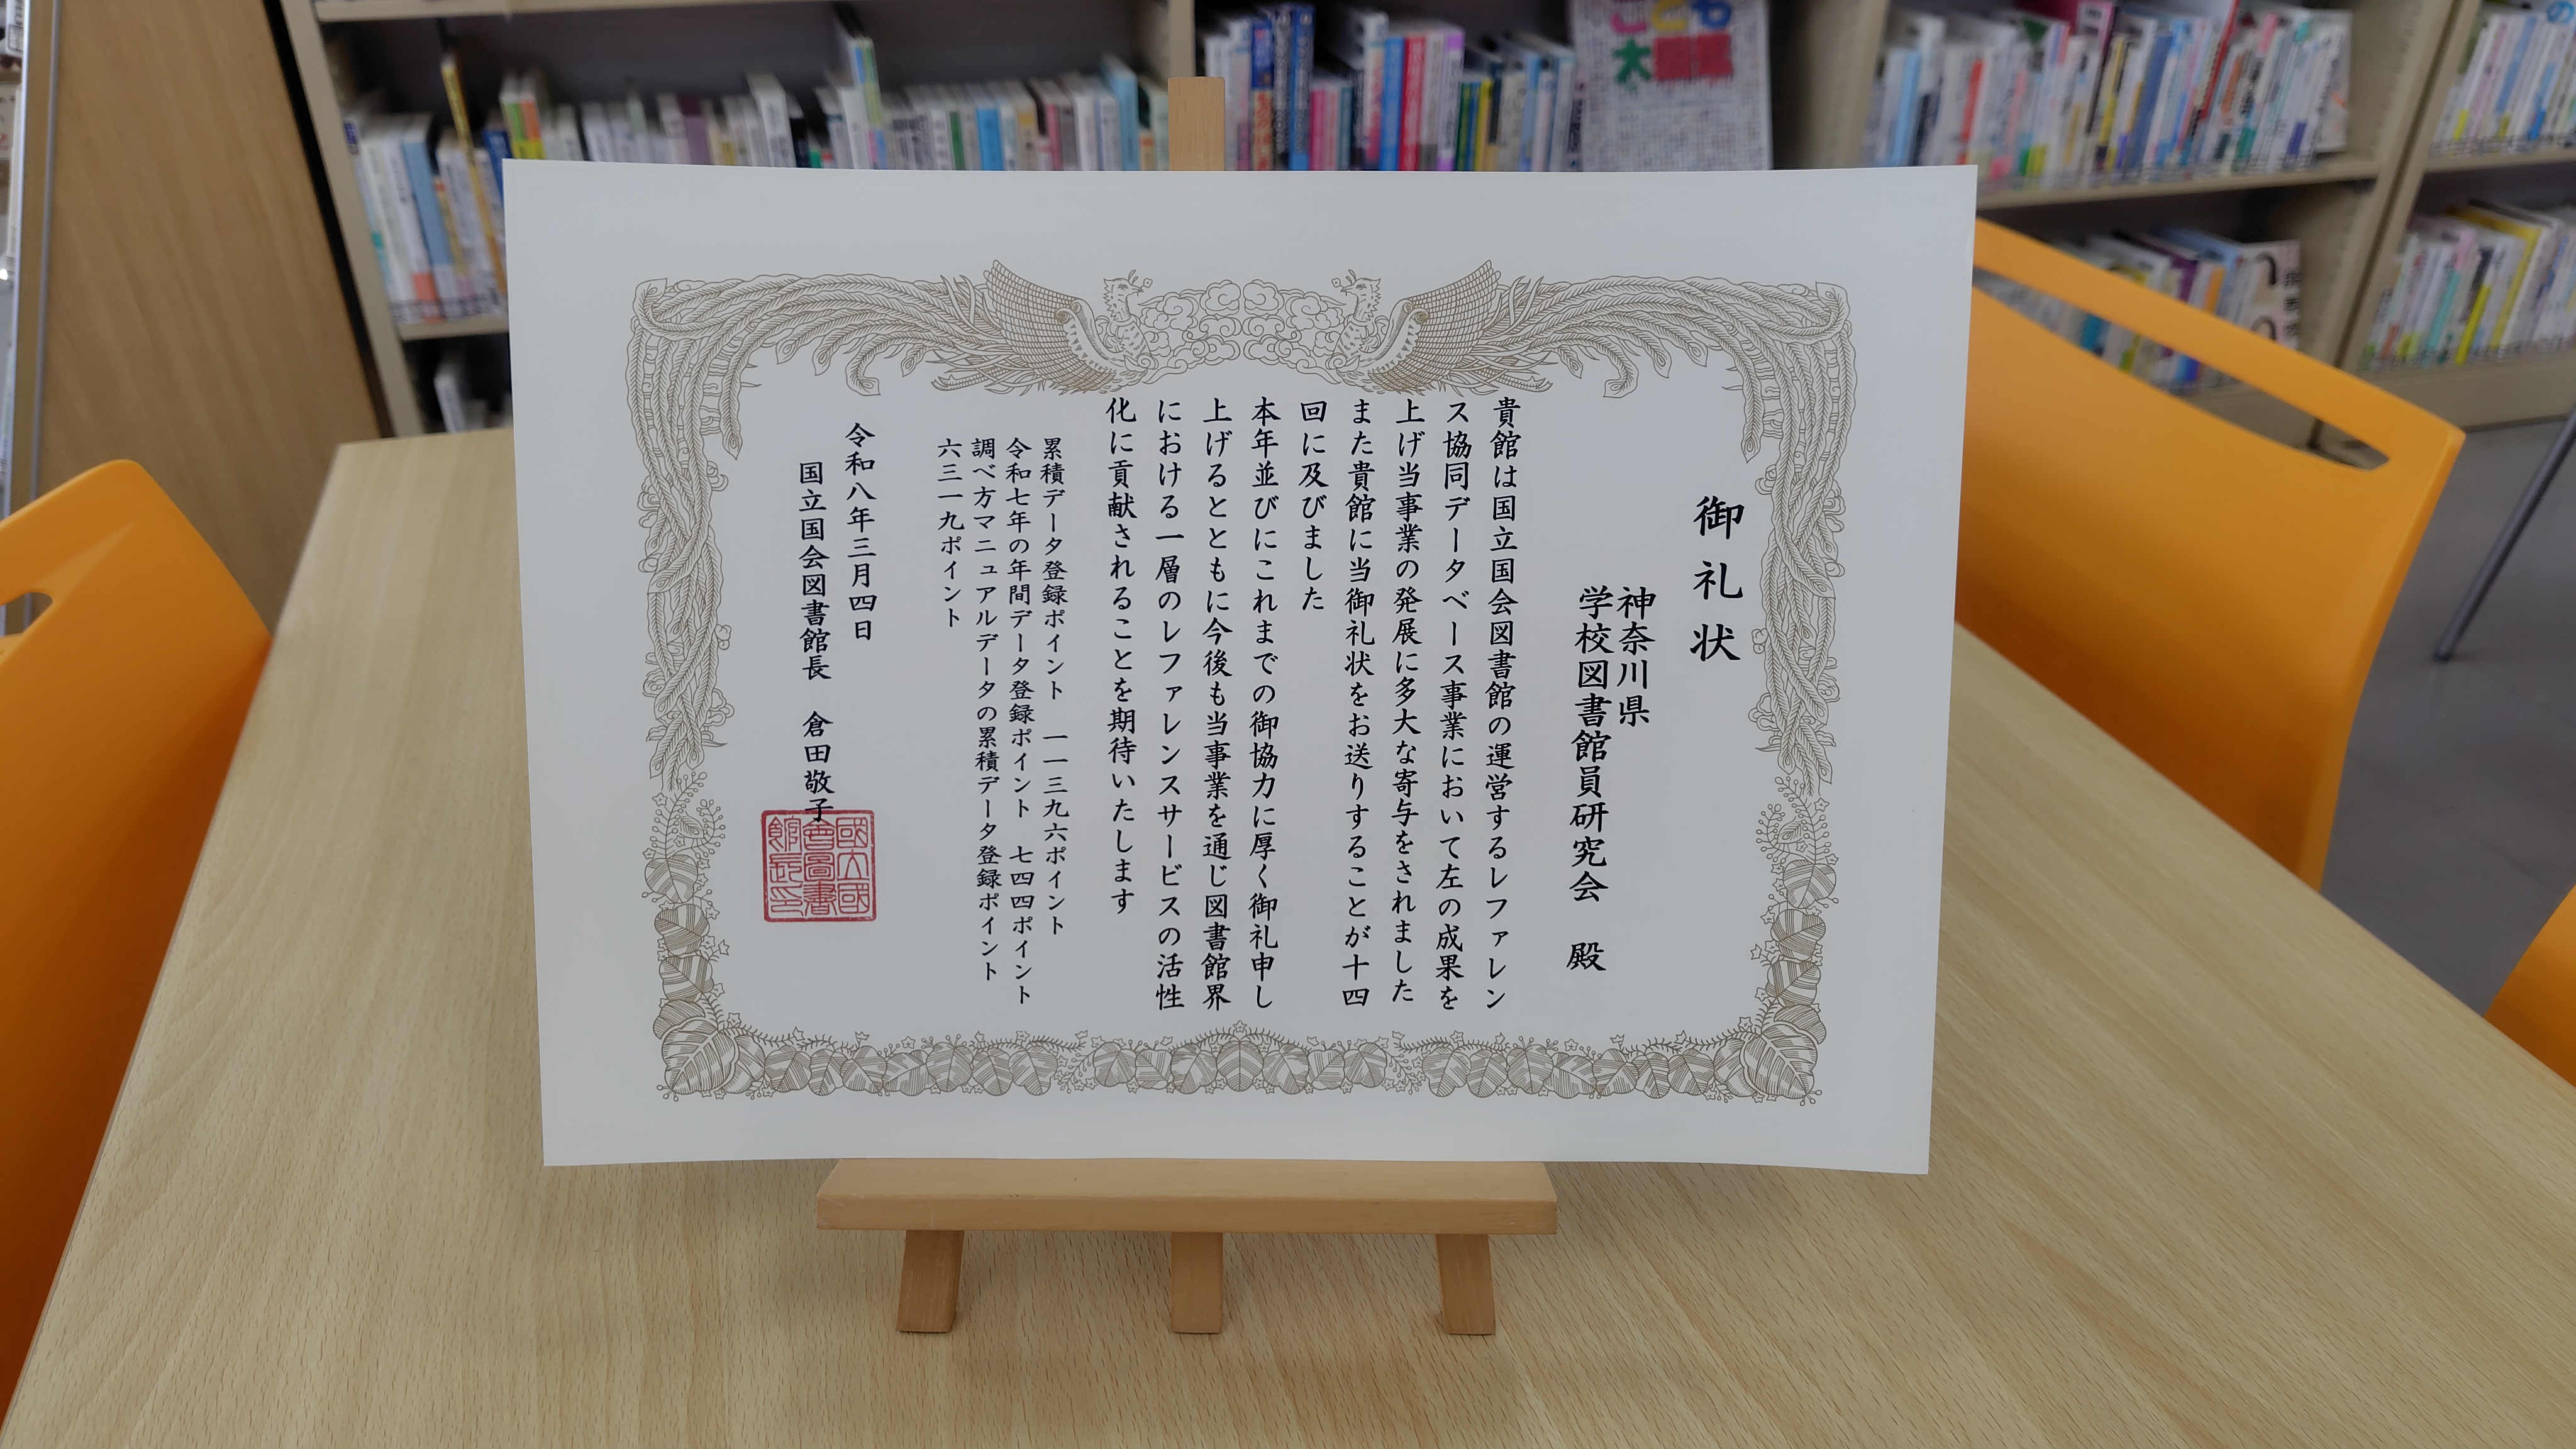 御礼状
神奈川県
学校図書館員研究会　殿
貴館は国立国会図書館の運営するレファレン
ス協同データベース事業において左の成果を
上げ当事業の発展に多大な寄与をされました
また貴館に当御礼状をお送りすることが十四
回に及びました
本年並びにこれまでの御協力に厚く御礼申し
上げるとともに今後も当事業を通じ図書館界
における一層のレファレンスサービスの活性
化に貢献されることを期待いたします
累積データ登録ポイント　一一三九六ポイント
令和七年の年間データ登録ポイント　七四四ポイント
調べ方マニュアルデータの累積データ登録ポイント
六三一九ポイント
令和八年三月四日
国立国会図書館長　倉田敬子
國立國
會圖書
館長印